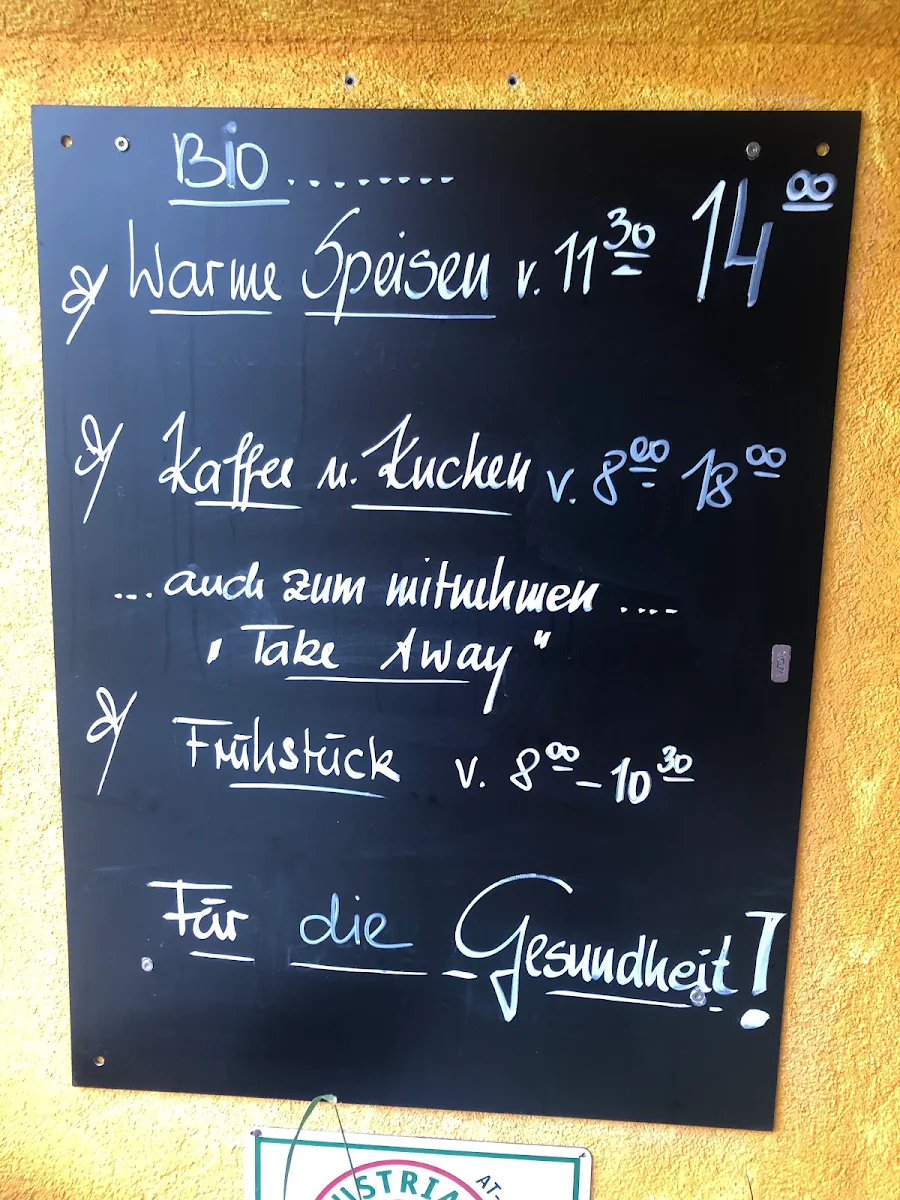 Bio........
Warme Speisen v. 11³⁰ 14⁰⁰
Kaffee u. Kuchen v. 8⁰⁰ 18⁰⁰
... auch zum mitnehmen ....
"Take Away"
Frühstück v. 8⁰⁰ – 10³⁰
Für die Gesundheit!
USTRIA
AT-